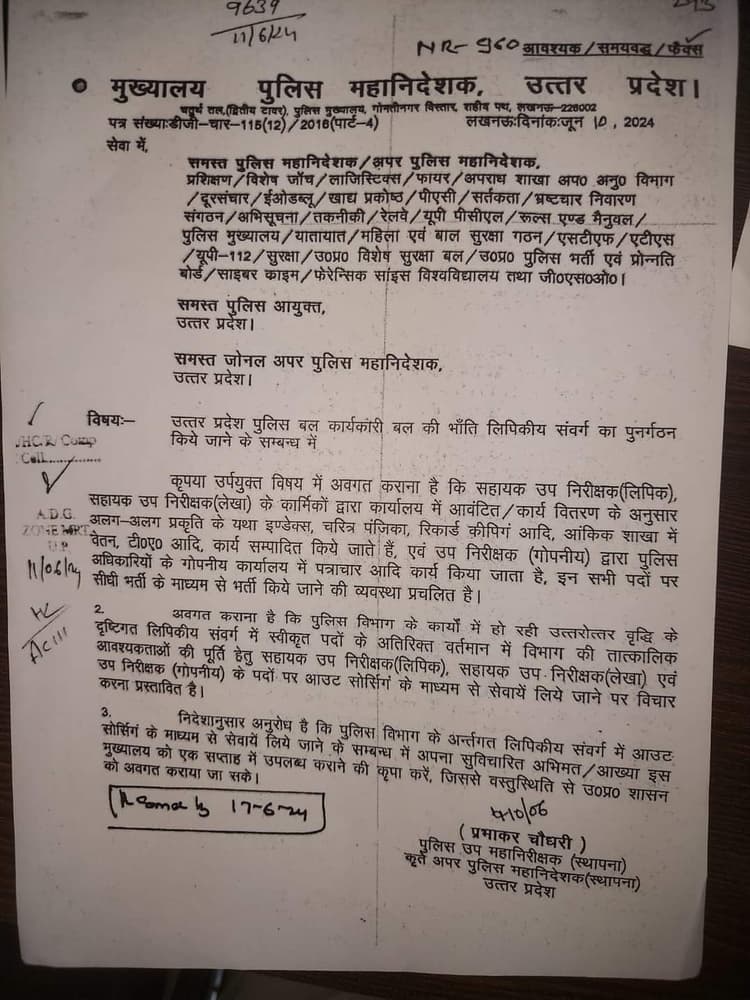 9639
11/6/24
NR- 960 आवश्यक/समयवद्ध/फैक्स
मुख्यालय पुलिस महानिदेशक, उत्तर प्रदेश।
चतुर्थ तल,(द्वितीय टावर), पुलिस मुख्यालय, गोमतीनगर विस्तार, शहीद पथ, लखनऊ-226002
पत्र संख्या:डीजी-चार-115(12)/2016(पार्ट-4) लखनऊ:दिनांक:जून 10, 2024
सेवा में,
समस्त पुलिस महानिदेशक/अपर पुलिस महानिदेशक,
प्रशिक्षण/विशेष जॉच/लाजिस्टिक्स/फायर/अपराध शाखा अप० अनु० विभाग
/दूरसंचार/ईओडब्लू/खाद्य प्रकोष्ठ/पीएसी/सर्तकता/भ्रष्टचार निवारण
संगठन/अभिसूचना/तकनीकी/रेलवे/यूपी पीसीएल/रूल्स एण्ड मैनुवल/
पुलिस मुख्यालय/यातायात/महिला एवं बाल सुरक्षा गठन/एसटीएफ/एटीएस
/यूपी-112/सुरक्षा/उ०प्र० विशेष सुरक्षा बल/उ०प्र० पुलिस भर्ती एवं प्रोन्नति
बोर्ड/साइबर काइम/फोरेन्सिक साइंस विश्वविद्यालय तथा जी०एस०ओ०।
समस्त पुलिस आयुक्त,
उत्तर प्रदेश।
समस्त जोनल अपर पुलिस महानिदेशक,
उत्तर प्रदेश।
विषय:- उत्तर प्रदेश पुलिस बल कार्यकारी बल की भॉति लिपिकीय संवर्ग का पुनर्गठन
किये जाने के सम्बन्ध में
Comp
Cell
कृपया उर्पयुक्त विषय में अवगत कराना है कि सहायक उप निरीक्षक(लिपिक),
सहायक उप निरीक्षक(लेखा) के कार्मिकों द्वारा कार्यालय में आवंटित/कार्य वितरण के अनुसार
अलग-अलग प्रकृति के यथा इण्डेक्स, चरित्र पंजिका, रिकार्ड कीपिगं आदि, आंकिक शाखा में
वेतन, टी०ए० आदि, कार्य सम्पादित किये जाते हैं, एवं उप निरीक्षक (गोपनीय) द्वारा पुलिस
अधिकारियों के गोपनीय कार्यालय में पत्राचार आदि कार्य किया जाता है, इन सभी पदों पर
सीधी भर्ती के माध्यम से भर्ती किये जाने की व्यवस्था प्रचलित है।
A.D.G.
ZONE MRT.
U.P.
11/06/24
2. अवगत कराना है कि पुलिस विभाग के कार्यो में हो रही उत्तरोत्तर वृद्धि के
दृष्टिगत लिपिकीय संवर्ग में स्वीकृत पदों के अतिरिक्त वर्तमान में विभाग की तात्कालिक
आवश्यकताओं की पूर्ति हेतु सहायक उप निरीक्षक(लिपिक), सहायक उप निरीक्षक(लेखा) एवं
उप निरीक्षक (गोपनीय) के पदों पर आउट सोर्सिगं के माध्यम से सेवायें लिये जाने पर विचार
करना प्रस्तावित है।
3. निदेशानुसार अनुरोध है कि पुलिस विभाग के अर्न्तगत लिपिकीय संवर्ग में आउट
सोर्सिगं के माध्यम से सेवायें लिये जाने के सम्बन्ध में अपना सुविचारित अभिमत/आख्या इस
मुख्यालय को एक सप्ताह में उपलब्ध कराने की कृपा करें, जिससे वस्तुस्थिति से उ०प्र० शासन
को अवगत कराया जा सके।
17-6-24
10/06
( प्रभाकर चौधरी )
पुलिस उप महानिरीक्षक (स्थापना)
कृते अपर पुलिस महानिदेशक(स्थापना)
उत्तर प्रदेश